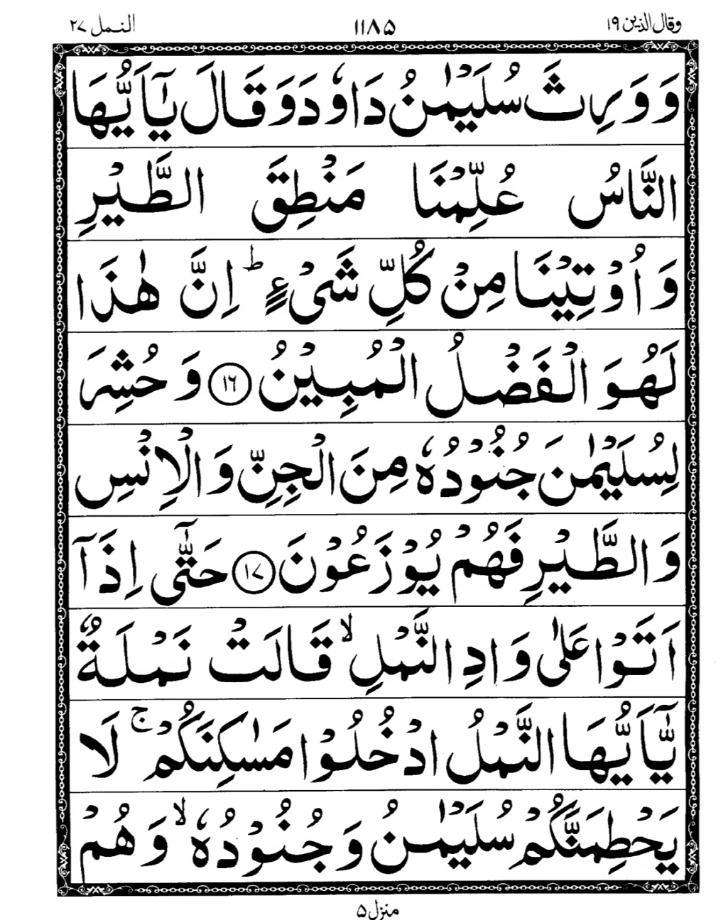 وقال الذین ۱۹ ۱۱۸۵ النمل ۲۷
وَوَرِثَ سُلَيْمٰنُ دَاوٗدَ وَقَالَ يٰٓاَيُّهَا
النَّاسُ عُلِّمْنَا مَنْطِقَ الطَّيْرِ
وَاُوْتِيْنَا مِنْ كُلِّ شَیْءٍ ؕ اِنَّ هٰذَا
لَهُوَ الْفَضْلُ الْمُبِيْنُ ﴿۱۶﴾ وَحُشِرَ
لِسُلَيْمٰنَ جُنُوْدُهٗ مِنَ الْجِنِّ وَالْاِنْسِ
وَالطَّيْرِ فَهُمْ يُوْزَعُوْنَ ﴿۱۷﴾ حَتّٰۤی اِذَاۤ
اَتَوْا عَلٰی وَادِ النَّمْلِ ۙ قَالَتْ نَمْلَةٌ
يّٰۤاَيُّهَا النَّمْلُ ادْخُلُوْا مَسٰكِنَكُمْ ۚ لَا
يَحْطِمَنَّكُمْ سُلَيْمٰنُ وَجُنُوْدُهٗ ۙ وَهُمْ
منزل ۵